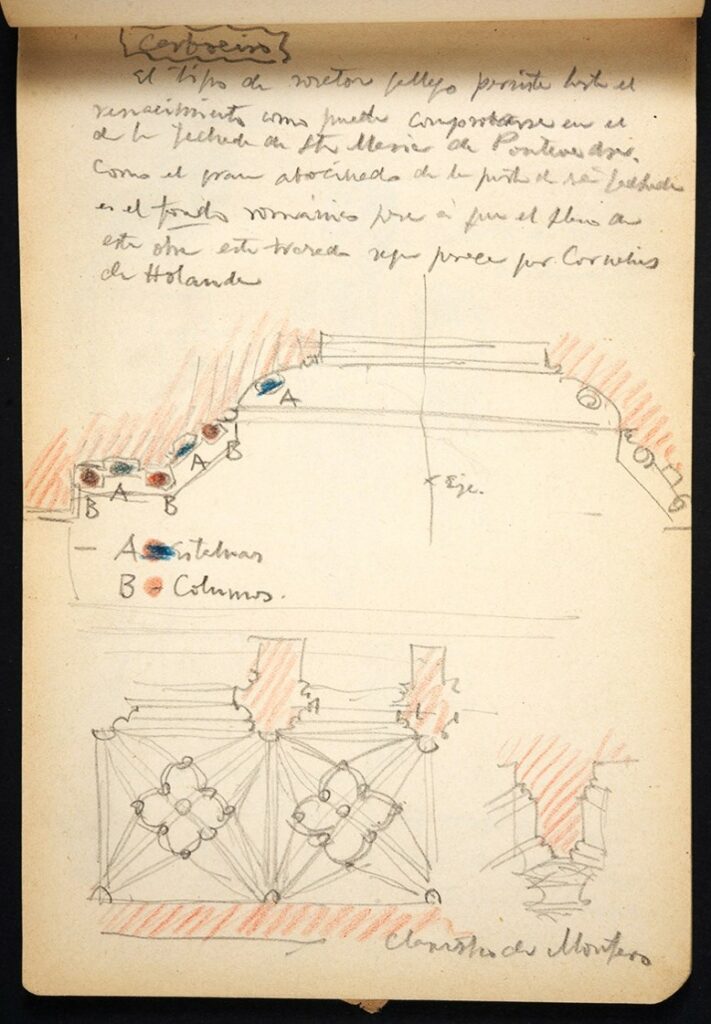 Carboeiro
El tipo de rosetón gallego persiste hasta el
renacimiento como puede comprobarse en el
de la fachada de Sta Maria de Pontevedra.
Como el gran abocinado de la puerta de fachada
es el fondo románico pero el plano de
esta obra está trazado según parece por Cornelius
de Holanda
A
A B
A
B B
x Eje.
A
B - Columnas.
Claustro de Monfero